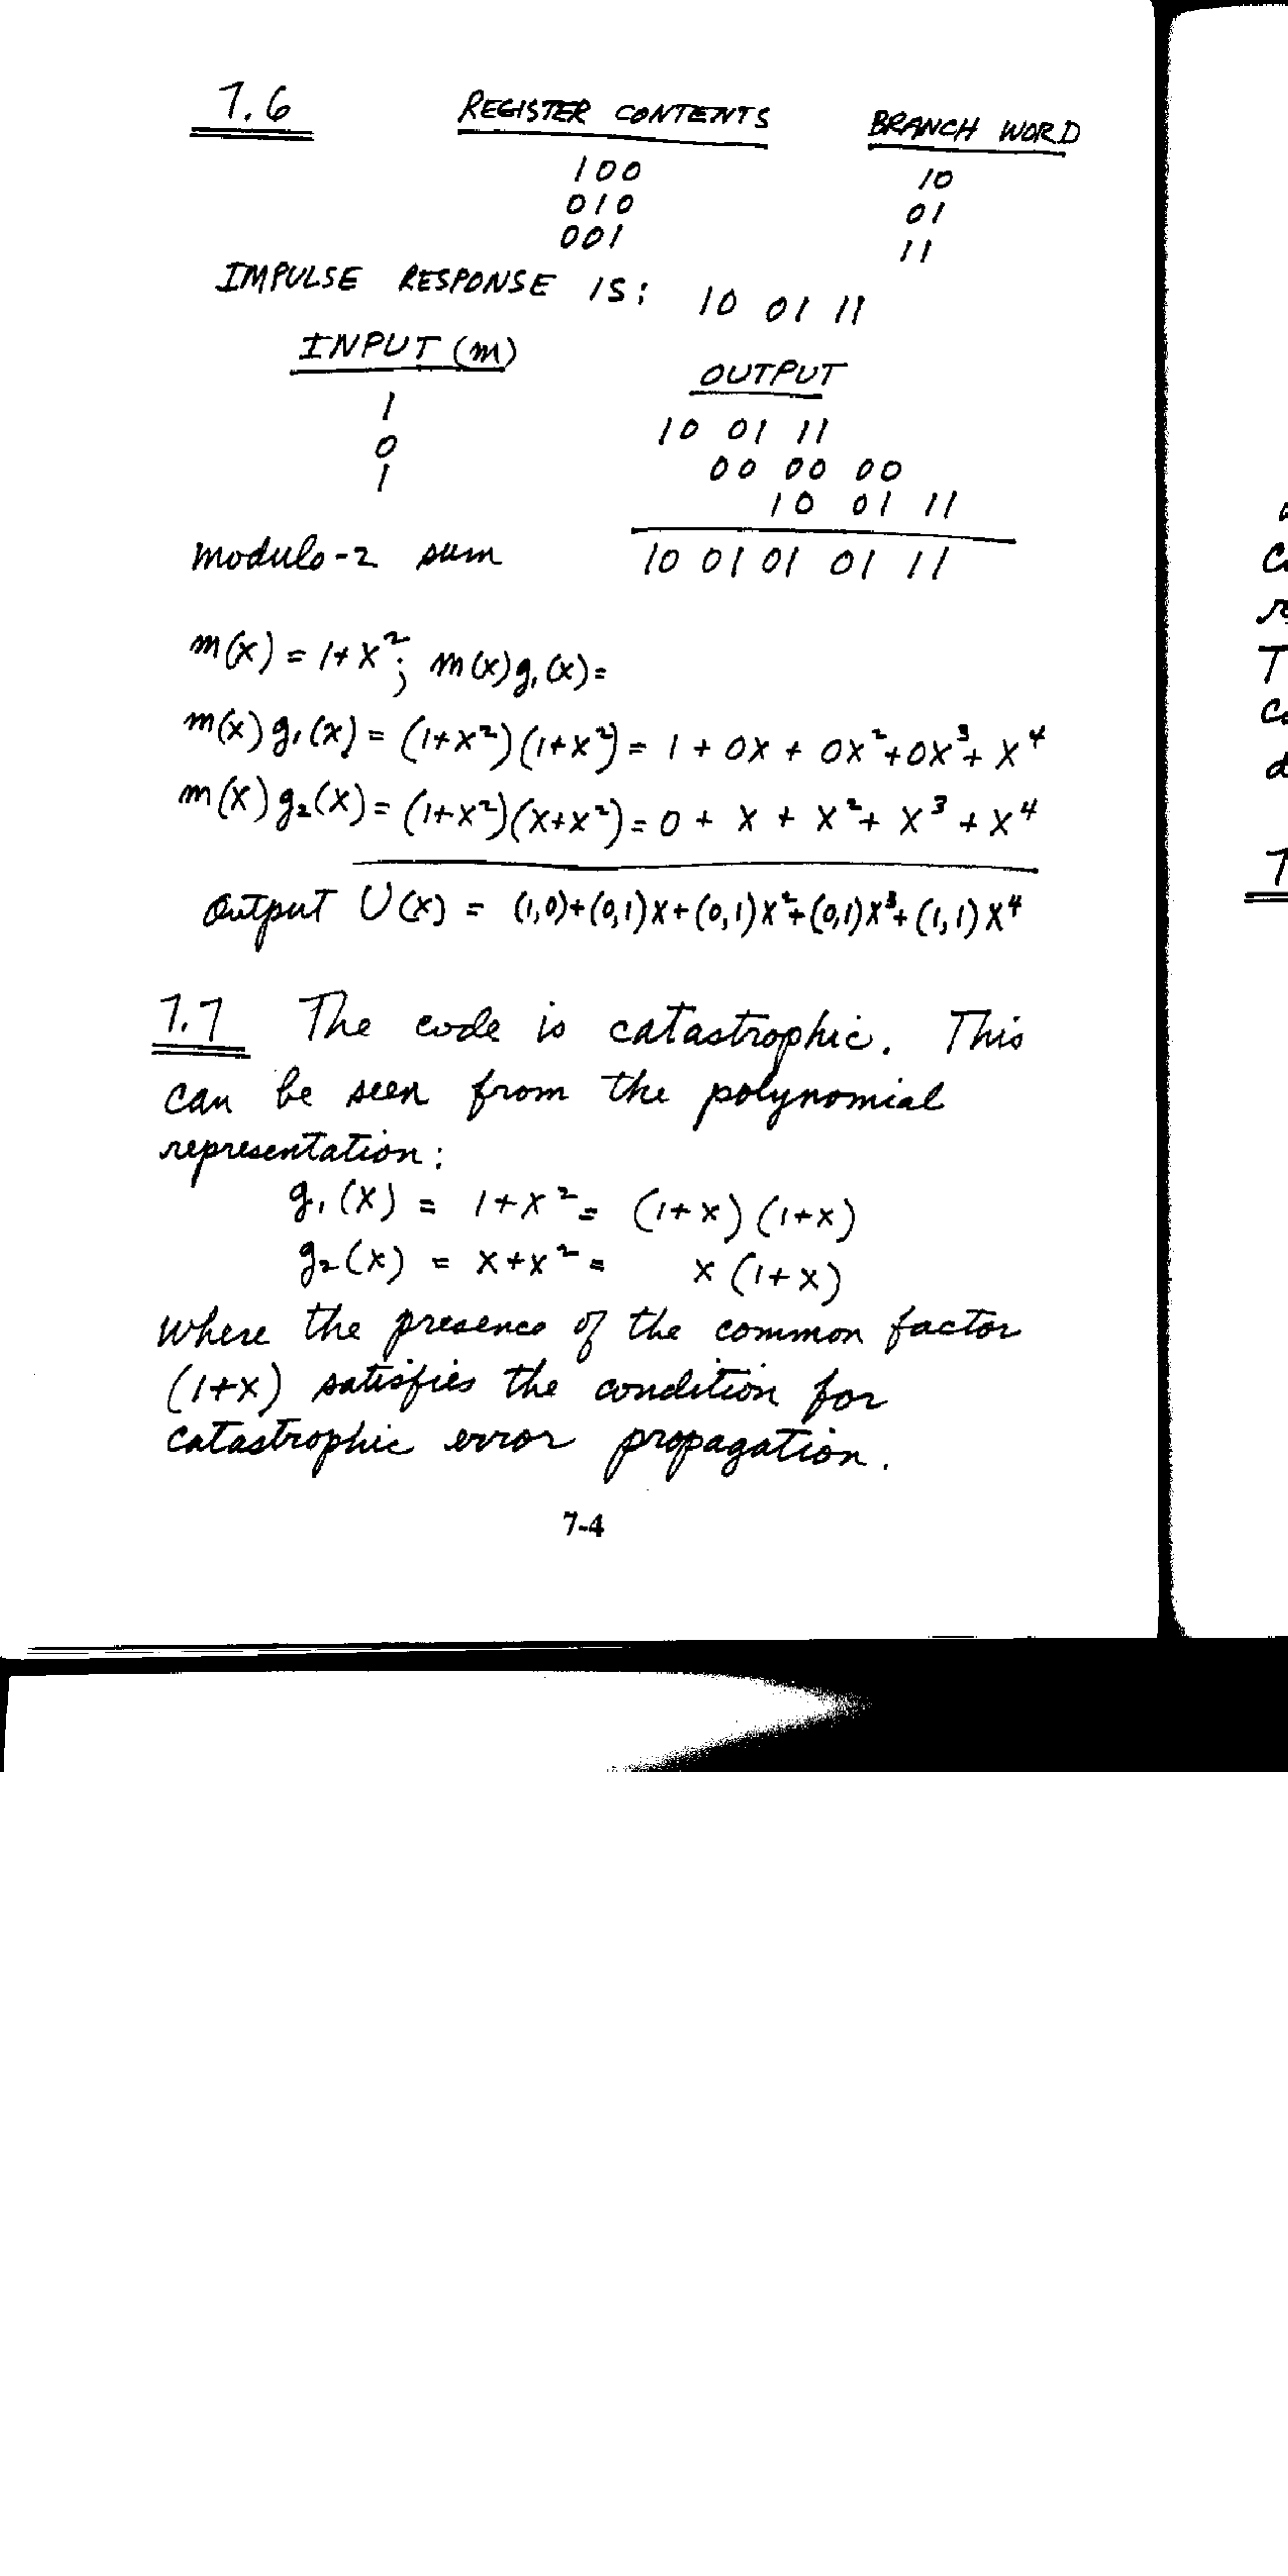 7.6 REGISTER CONTENTS BRANCH WORD
100 10
010 01
001 11
IMPULSE RESPONSE IS: 10 01 11
INPUT (m) OUTPUT
1 10 01 11
0 00 00 00
1 10 01 11
modulo-2 sum 10 01 01 01 11
m(x) = 1+x²; m(x)g₁(x)=
m(x)g₁(x) = (1+x²)(1+x²) = 1 + 0x + 0x²+0x³+ x⁴
m(x)g₂(x) = (1+x²)(x+x²) = 0 + x + x²+ x³ + x⁴
output U(x) = (1,0)+(0,1)x+(0,1)x²+(0,1)x³+(1,1)x⁴
7.7 The code is catastrophic. This
can be seen from the polynomial
representation:
g₁(x) = 1+x² = (1+x)(1+x)
g₂(x) = x+x² = x(1+x)
where the presence of the common factor
(1+x) satisfies the condition for
catastrophic error propagation.
7-4